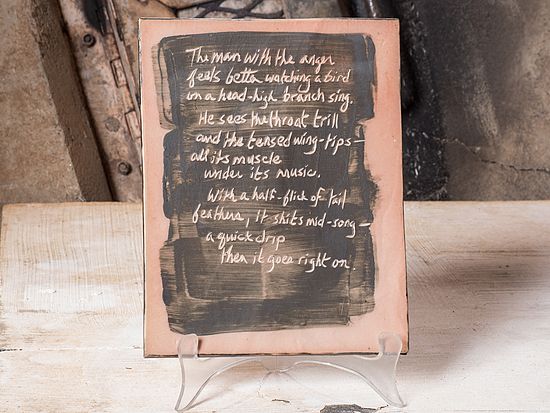 The man with the anger
feels better watching a bird
on a head-high branch sing.
He sees the throat trill
and the tensed wing-tips—
all its muscle
under its music.
With a half-flick of tail
feathers, it shits mid-song—
a quick drip
then it goes right on.